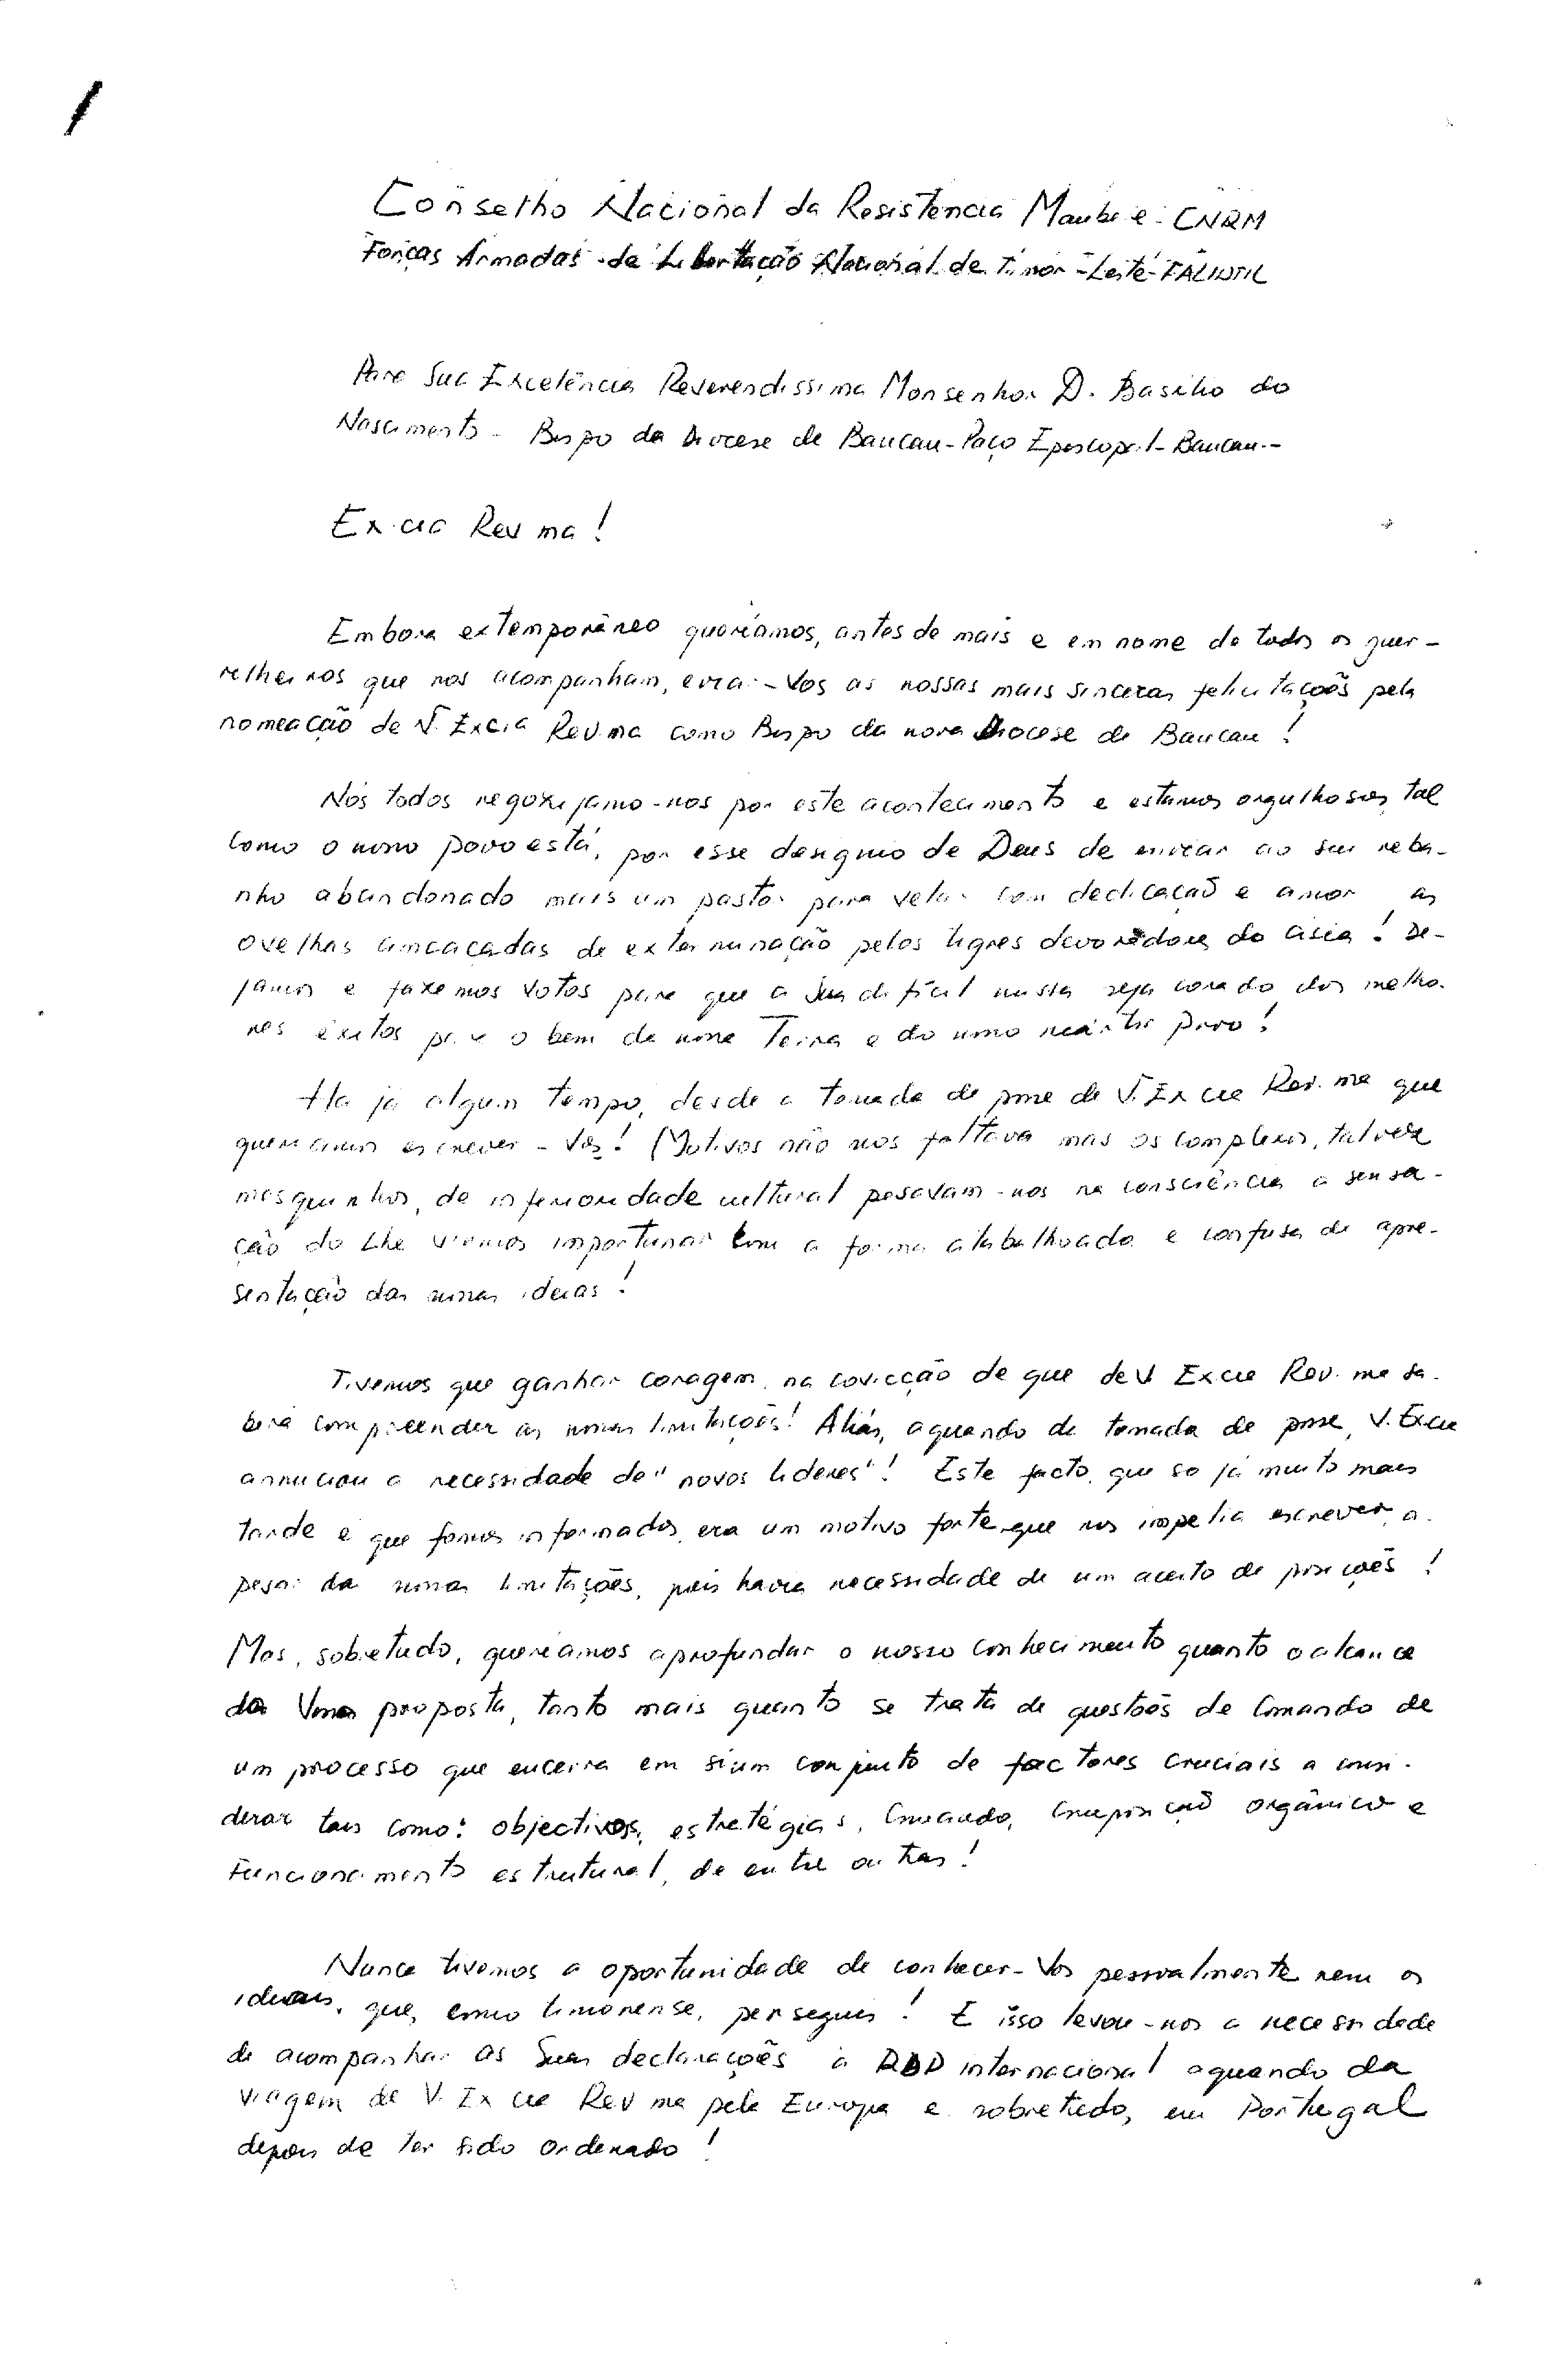 Conselho Nacional da Resistencia Maubere - CNRM
Forças Armadas de Libertação Nacional de Timor-Leste-FALINTIL
Para Sua Excelência Reverendissima Monsenhor D. Basilio do
Nascimento - Bispo da Diocese de Baucau - Paço Episcopal - Baucau.-
Ex.cia Rev ma!
Embora extemporâneo queriamos, antes de mais e em nome de todos os guer-
rilheiros que nos acompanham, eviar-Vos as nossas mais sinceras felicitaçoẽs pela
nomeação de V. Excia Rev.ma como Bispo da nova Diocese de Baucau!
Nós todos regozijamo-nos por este acontecimento e estamos orgulhosos, tal
como o nosso povo está, por esse designio de Deus de enviar ao seu reba-
nho abandonado mais um pastor para velar com dedicaçaõ e amor as
ovelhas ameaçadas de exterminação pelos tigres devoradores da ásia! De-
jamos e fazemos votos para que a Sua dificil missa seja coroado dos melho-
res êxitos para o bem da nossa Terra e do nosso mártir povo!
Ha já algum tempo, desde a tomada de posse de V. Excia Rev. ma que
queriamos escrever-Vos! Motivos não nos faltava mas os complexos, talvez
mesquinhos, de inferioridade cultural pesavam-nos na consciência a sensa-
ção de Lhe virmos importunar com a forma atabalhoada e confusa de apre-
sentação das nossas ideias!
Tivemos que ganhar coragem, na covicção de que de V Excia Rev. ma sa-
berá compreender as nossas limitaçoẽs! Aliás, aquando da tomada de posse, V. Excia
annuciou a necessidade de "novos lideres"! Este facto, que so já muito mais
tarde é que fomos informados, era um motivo forte que nos impelia escrever, a-
pesar das nossas limitações, pois havia necessidade de um acerto de posições!
Mas, sobretudo, queriamos aprofundar o nosso conhecimento quanto o alcance
da Vossa proposta, tanto mais quanto se trata de questoẽs de Comando de
um processo que encerra em sium conjunto de factores cruciais a consi-
derar tais como: objectivos, estratégias, Comando, Composiçaõ orgânica e
Funcionamento estrutural, de entre outras!
Nunca tivemos a oportunidade de conhecer-Vos pessoalmente nem os
ideiais, que, como timorense, persegues! E isso levou-nos a necessidade
de acompanhar as Suas declaraçoẽs à RDP internacional aquando da
viagem de V. Excia Rev ma pela Europa e, sobretudo, em Portugal
depois de ter sido ordenado!